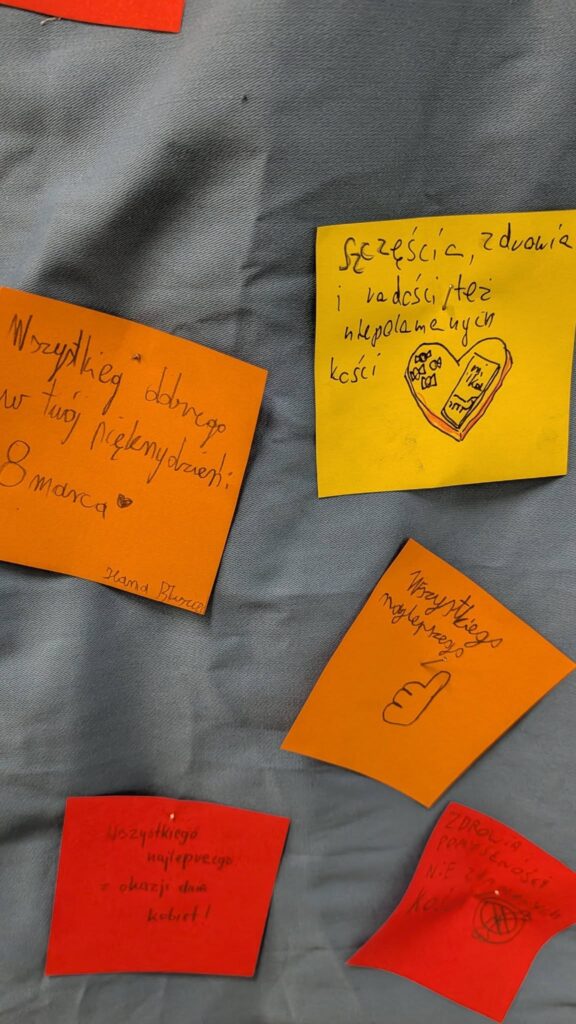 Szczęścia, zdrowia
i radości, też
niepołamanych
kości
Wszystkieg dobrego
w twój pięknydzień:
8 marca
Hania
Wszystkiego
najlepszego
Wszystkiego
najlepszego
z okazji dnia
kobiet!
ZDROWIA I
POMYŚLNOŚCI
NIE